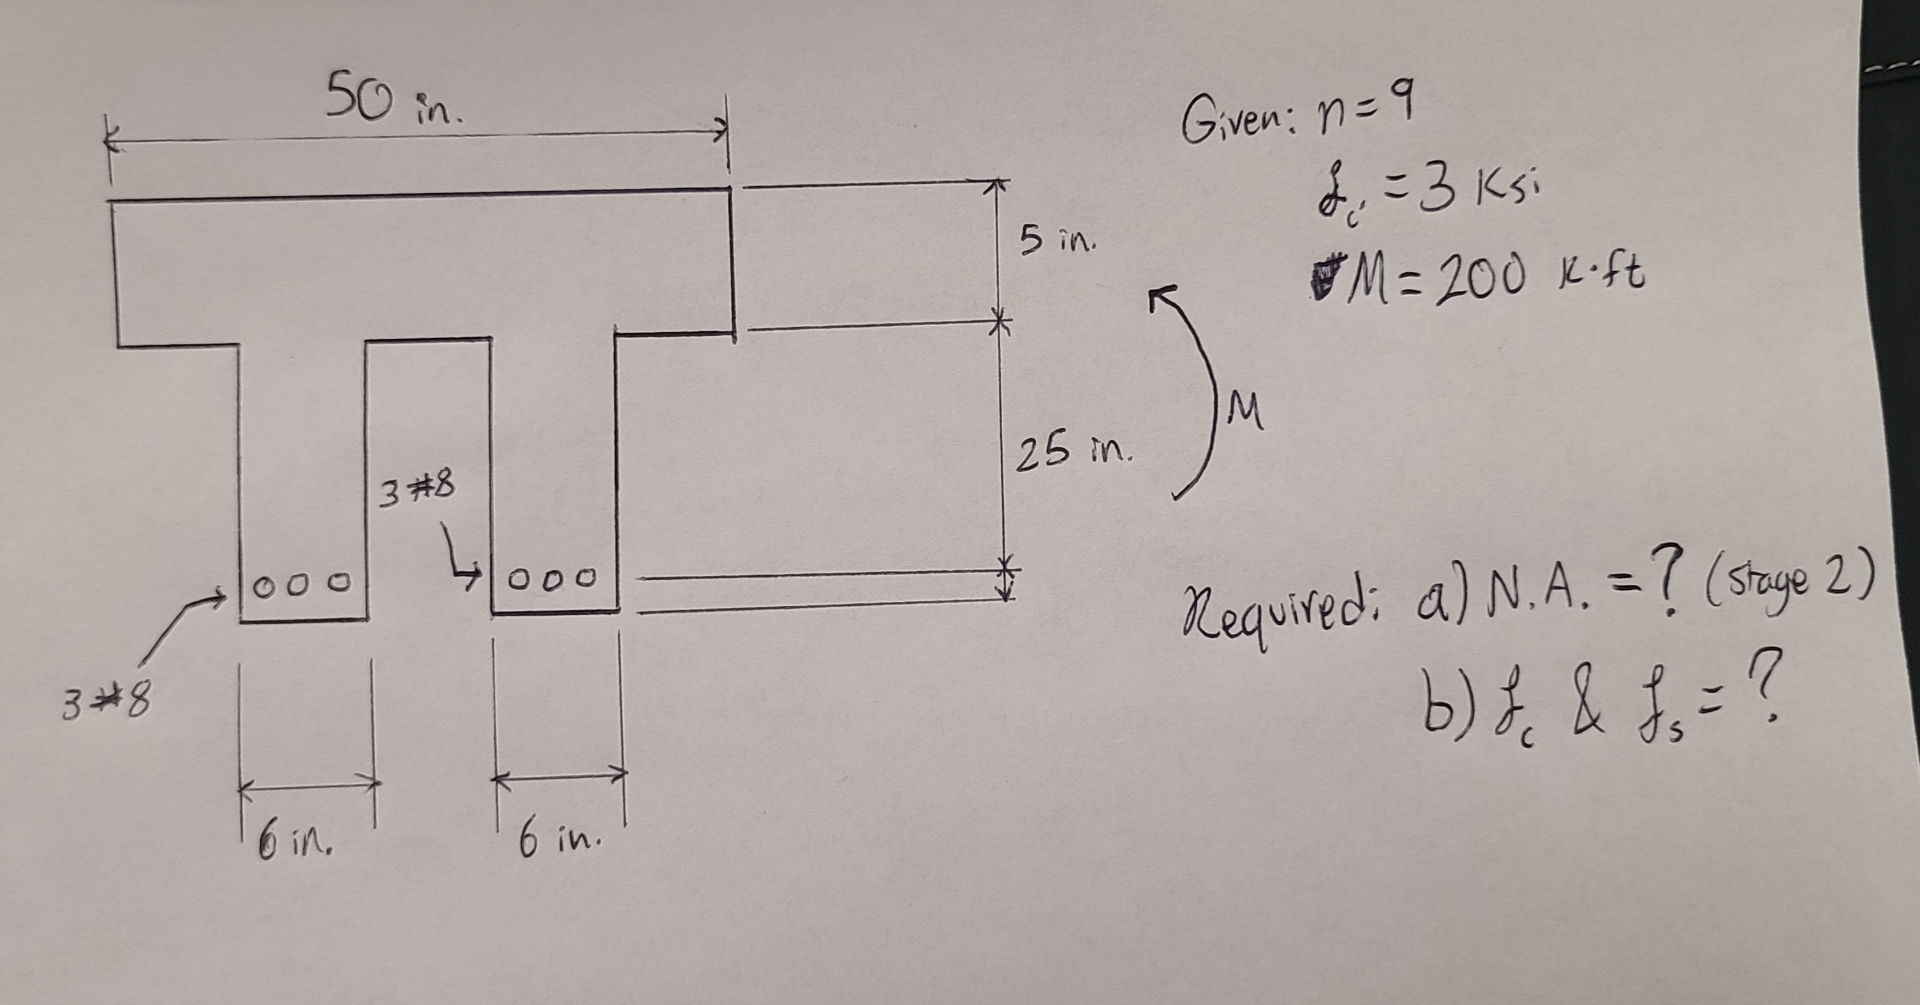 50 in.
Given: n = 9
f c' = 3 Ksi
M = 200 K·ft
5 in.
M
25 in.
3 #8
3 #8
6 in.
6 in.
Required: a) N.A. = ? (stage 2)
b) fc & fs = ?